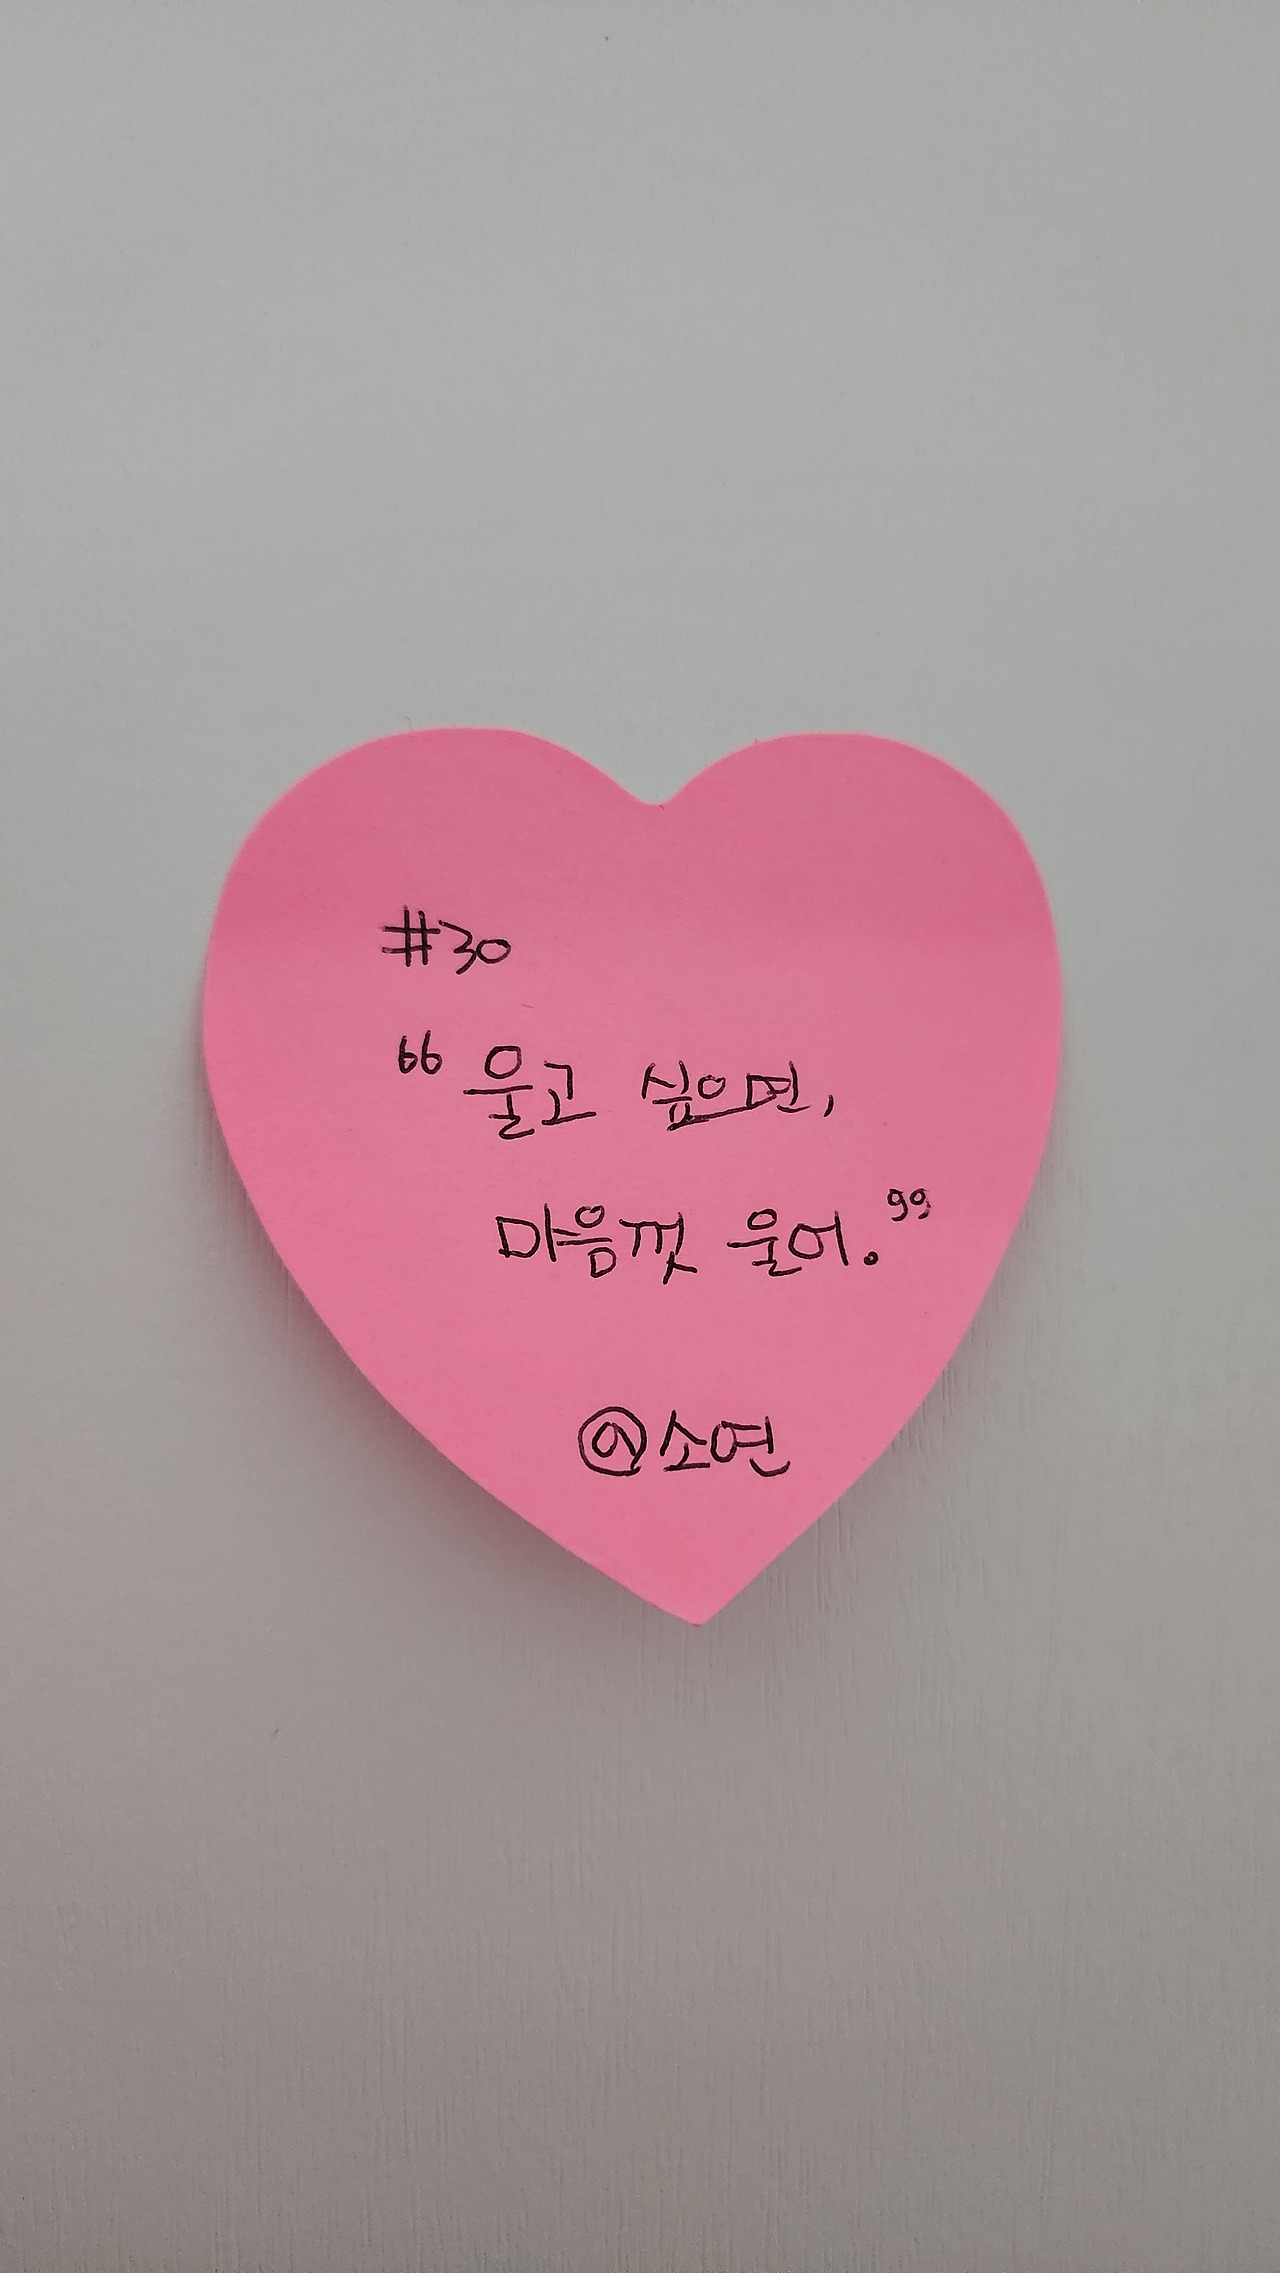 #30
“울고 싶으면,
마음껏 울어.”
@소연